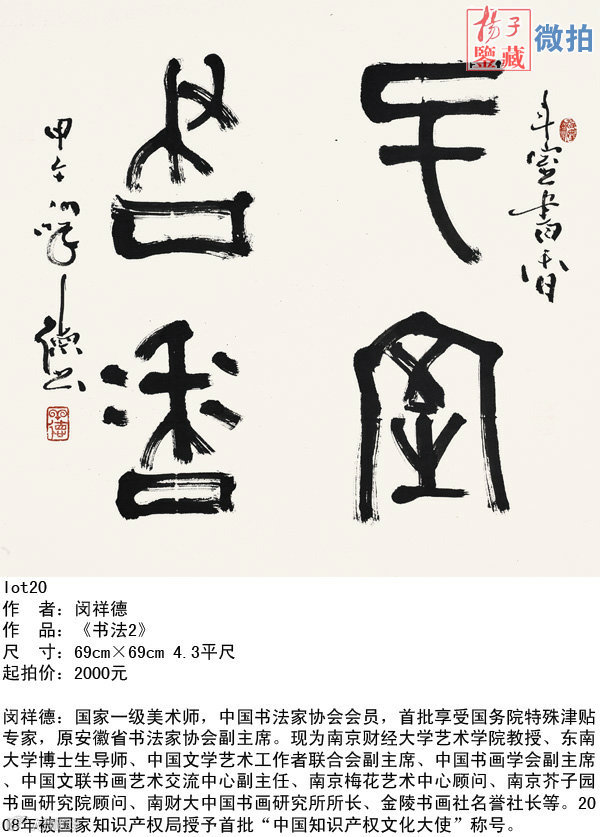 揚子
鑒藏
微拍
斗室
書香
斗室書香
甲午
祥德书
lot20
作　者：闵祥德
作　品：《书法2》
尺　寸：69cm×69cm 4.3平尺
起拍价：2000元
闵祥德：国家一级美术师，中国书法家协会会员，首批享受国务院特殊津贴
专家，原安徽省书法家协会副主席。现为南京财经大学艺术学院教授、东南
大学博士生导师、中国文学艺术工作者联合会副主席、中国书画学会副主席
、中国文联书画艺术交流中心副主任、南京梅花艺术中心顾问、南京芥子园
书画研究院顾问、南财大中国书画研究所所长、金陵书画社名誉社长等。20
08年被国家知识产权局授予首批“中国知识产权文化大使”称号。